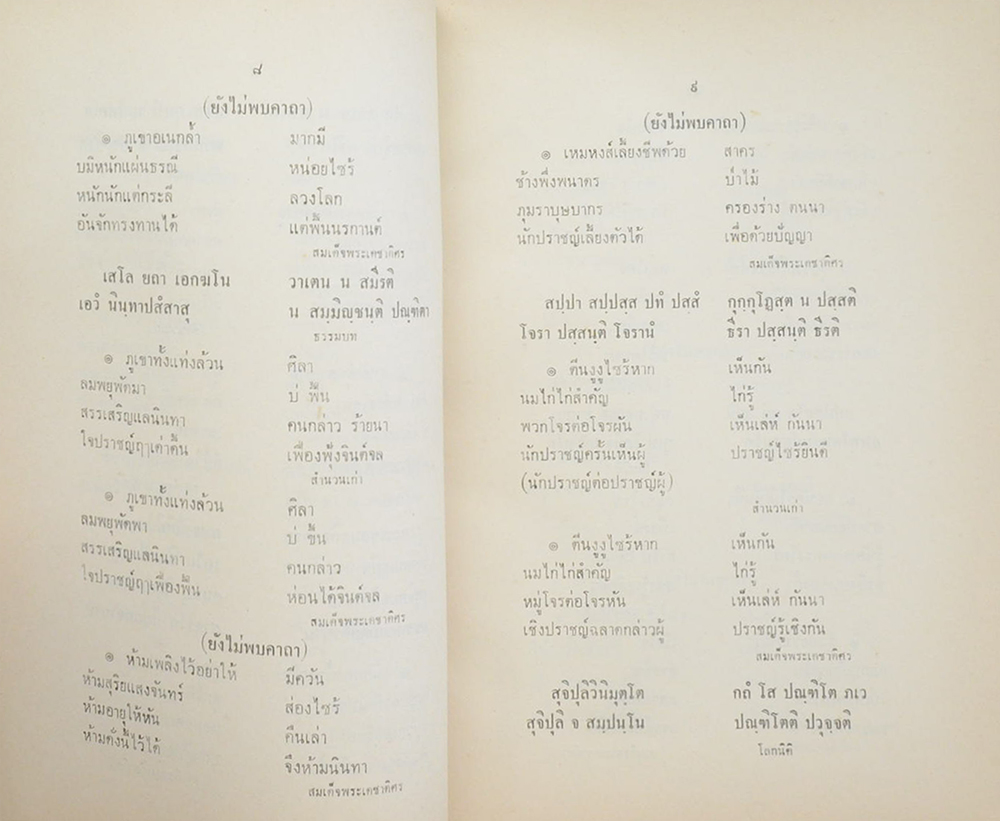 ๘
(ยังไม่พบคาถา)
๏ ภูเขาอเนกล้ำ มากมี
บมิหนักแผ่นธรณี หน่อยไซร้
หนักนักแต่กระลี ลวงโลก
อันจักทรงทานได้ แต่พื้นนรกานต์
สมเด็จพระเดชาดิศร
เสโล ยถา เอกฆโน วาเตน น สมีรติ
เอวํ นินฺทาปสํสาสุ น สมฺมิญฺชนฺติ ปณฺฑิตา
ธรรมบท
๏ ภูเขาทั้งแท่งล้วน ศิลา
ลมพยุพัดมา บ่ พื้น
สรรเสริญแลนินทา คนกล่าว ร้ายนา
ใจปราชญ์ฤๅเต่าตื้น เฟื่องฟุ้งจินต์จล
สำนวนเก่า
๏ ภูเขาทั้งแท่งล้วน ศิลา
ลมพยุพัดพา บ่ ขึ้น
สรรเสริญแลนินทา คนกล่าว
ใจปราชญ์ฤๅเฟื่องฟื้น ห่อนได้จินต์จล
สมเด็จพระเดชาดิศร
(ยังไม่พบคาถา)
๏ ห้ามเพลิงไว้อย่าให้ มีควัน
ห้ามสุริยแสงจันทร์ ส่องไซร้
ห้ามอายุให้หัน คืนเล่า
ห้ามดั่งนี้ไว้ได้ จึงห้ามนินทา
สมเด็จพระเดชาดิศร
๙
(ยังไม่พบคาถา)
๏ เหมหงส์เลี้ยงชีพด้วย สาคร
ช้างพึ่งพนาดร ป่าไม้
ภุมราบุษบากร ครองร่าง ตนนา
นักปราชญ์เลี้ยงตัวได้ เพื่อด้วยปัญญา
สมเด็จพระเดชาดิศร
สปฺปา สปฺปสฺส ปทํ ปสฺสํ กุกฺกุโฏสฺต น ปสฺสติ
โจรา ปสฺสนฺติ โจรานํ ธีรา ปสฺสนฺติ ธีรติ
๏ ตีนงูงูไซร้หาก เห็นกัน
นมไก่ไก่สำคัญ ไก่รู้
พวกโจรต่อโจรผัน เห็นเล่ห์ กันนา
นักปราชญ์ครั้นเห็นผู้ ปราชญ์ไซร้ยินดี
(นักปราชญ์ต่อปราชญ์ผู้)
สำนวนเก่า
๏ ตีนงูงูไซร้หาก เห็นกัน
นมไก่ไก่สำคัญ ไก่รู้
หมู่โจรต่อโจรหัน เห็นเล่ห์ กันนา
เชิงปราชญ์ฉลาดกล่าวผู้ ปราชญ์รู้เชิงกัน
สมเด็จพระเดชาดิศร
สุจิปุลิวินิมุตฺโต กถํ โส ปณฺฑิโต ภเว
สุจิปุลิ จ สมฺปนฺโน ปณฺฑิโตติ ปวุจฺจติ
โลกนิติ